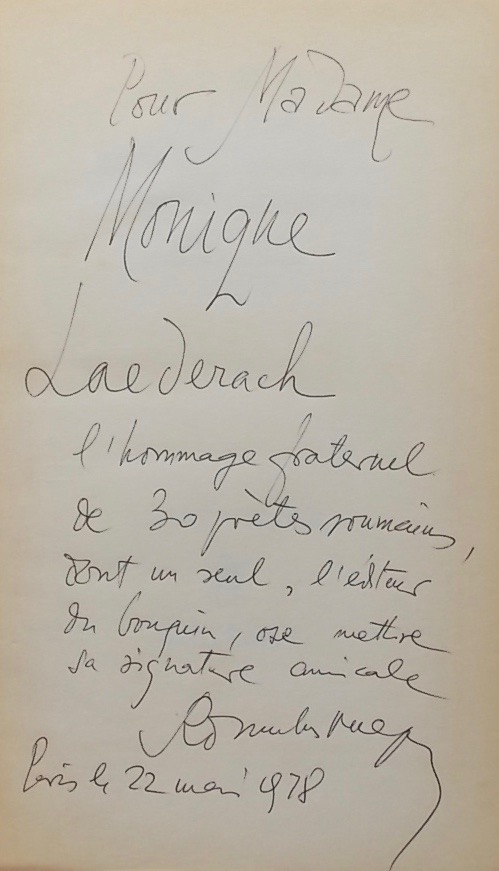 Pour Madame
Monique
Laederach
l'hommage fraternel
de 30 poètes roumains,
dont un seul, l'éditeur
du bouquin, ose mettre
sa signature amicale
Romulus
Paris le 22 mai 1978